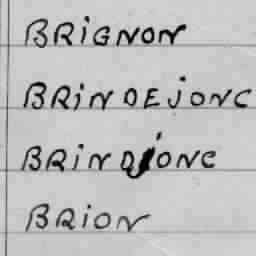 BRIGNON
BRINDEJONC
BRINDJONC
BRION